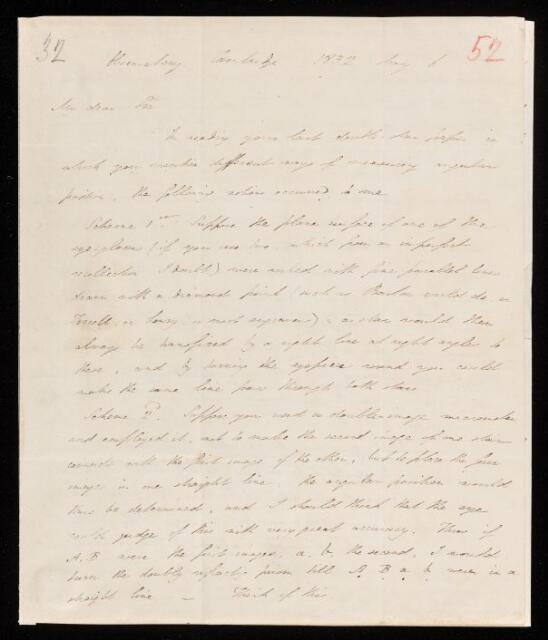 32 52
Observatory Cambridge 1832 May 6
My dear Sir
In reading your last double star paper in
which you mention different ways of measuring angular
position, the following notions occurred to me
Scheme 1st. Suppose the plane surface of one of the
eye-glasses (if you use two, which from an imperfect
recollection I doubt) were ruled with fine parallel lines
drawn with a diamond point (such as Barton would do, or
or Lowry, or most engravers) a star would then
always be transfixed by a right line at right angles to
these, and by turning the eyepiece round you could
make the same line pass through both stars
Scheme 2d. Suppose you used a double-image micrometer
and employed it, not to make the second image of one star
coincide with the first image of the other, but to place the four
images in one straight line. the angular position would
thus be determined, and I should think that the eye
could judge of this with very great accuracy. Thus if
A, B were the first images, a, b, the second, I would
turn the doubly refracting prism till A, B a, b were in a
straight line — Think of this